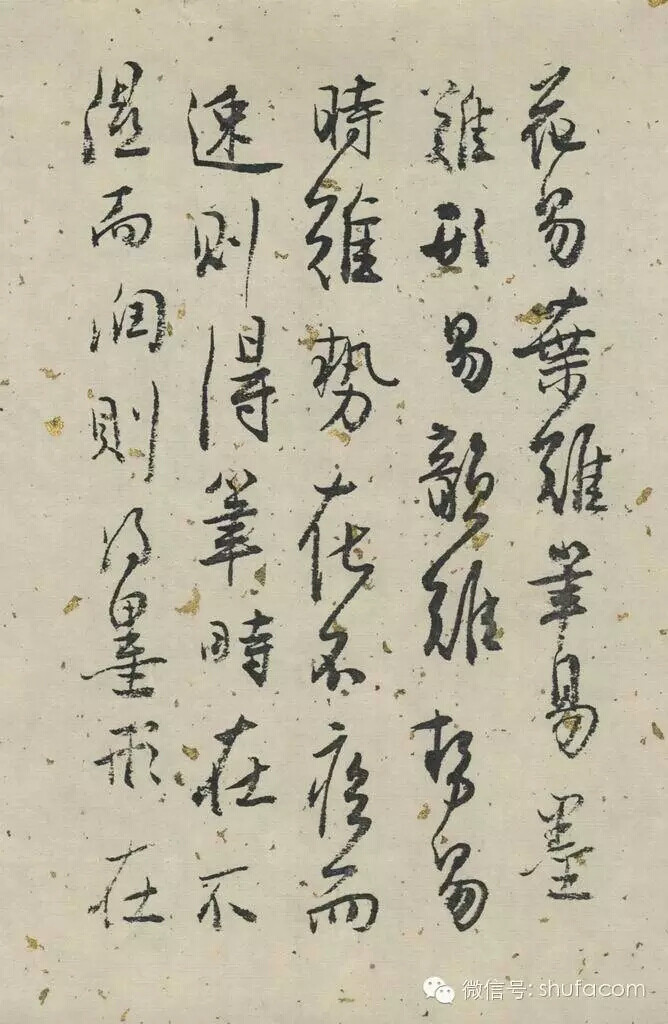 花易葉難筆易墨
難形易韻難勢易
時難勢在不疾而
速則得筆時在不
濕而润則得墨形在
微信号: shufacom